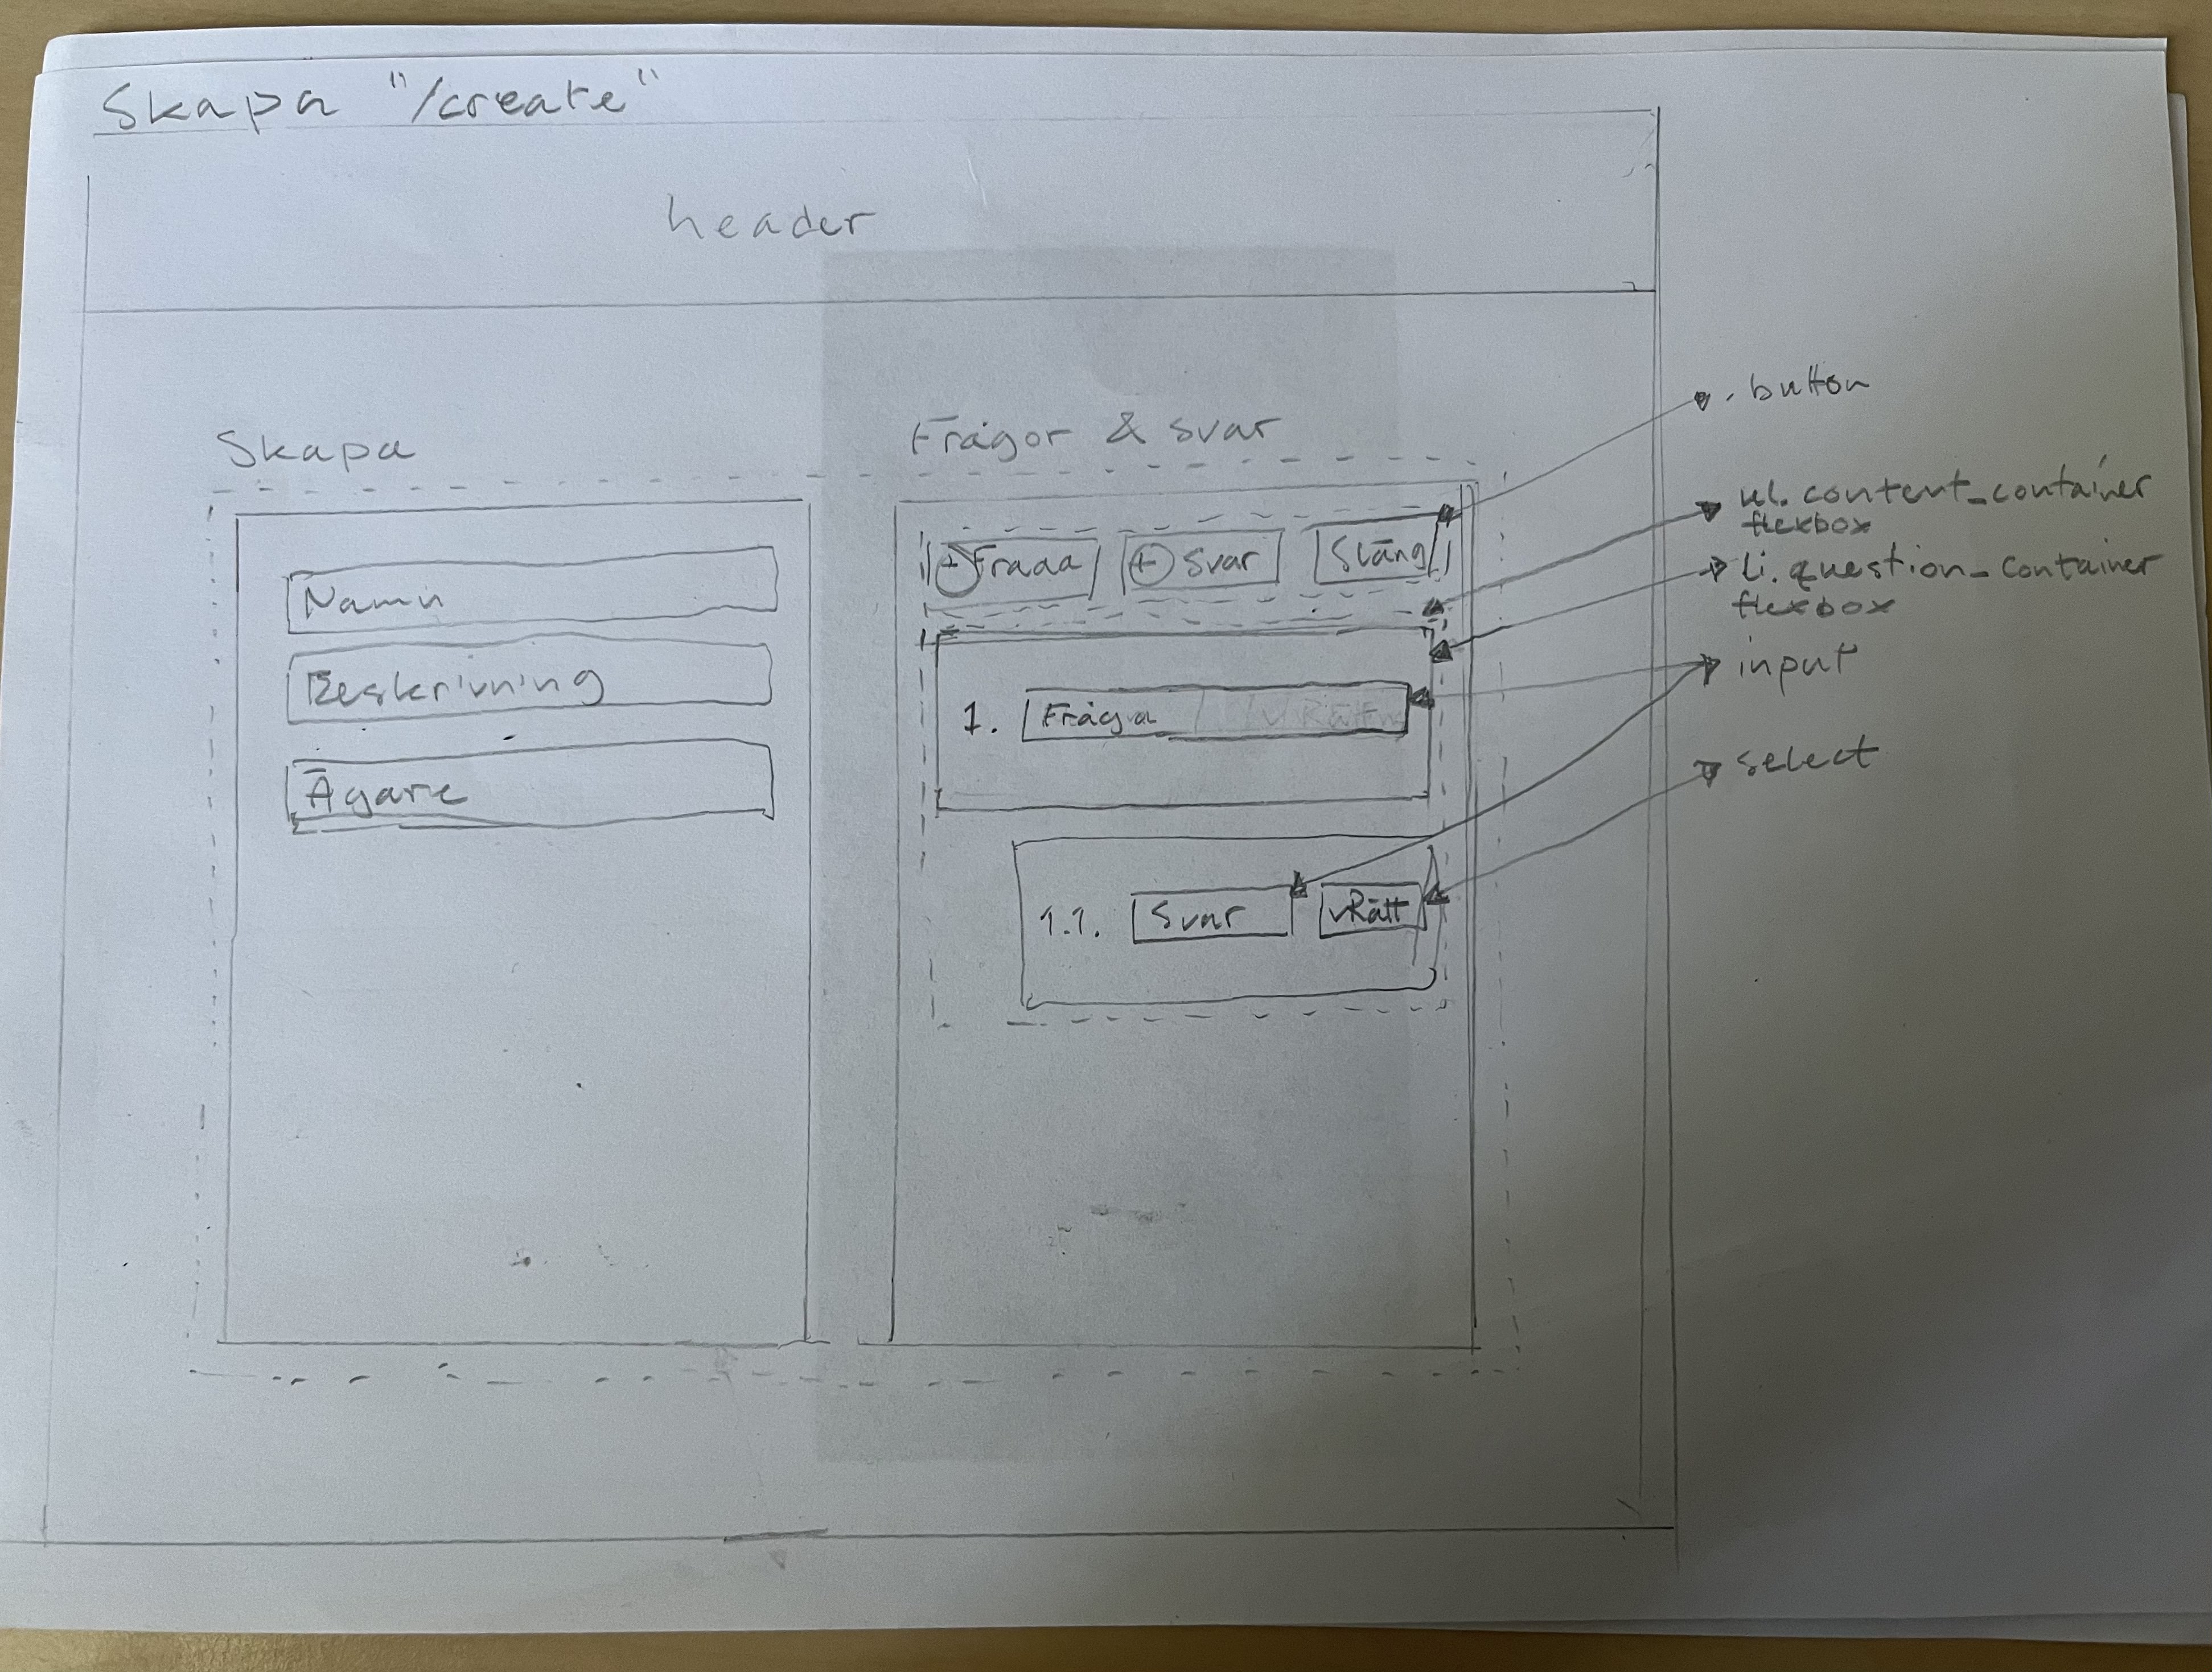 Skapa "/create"
header
Skapa
Namn
Beskrivning
Ägare
Frågor & svar
+ Fråga
+ Svar
Stäng
1. Fråga
1.1. Svar
vRätt
. button
ul. content_container
flexbox
li. question_container
flexbox
input
select